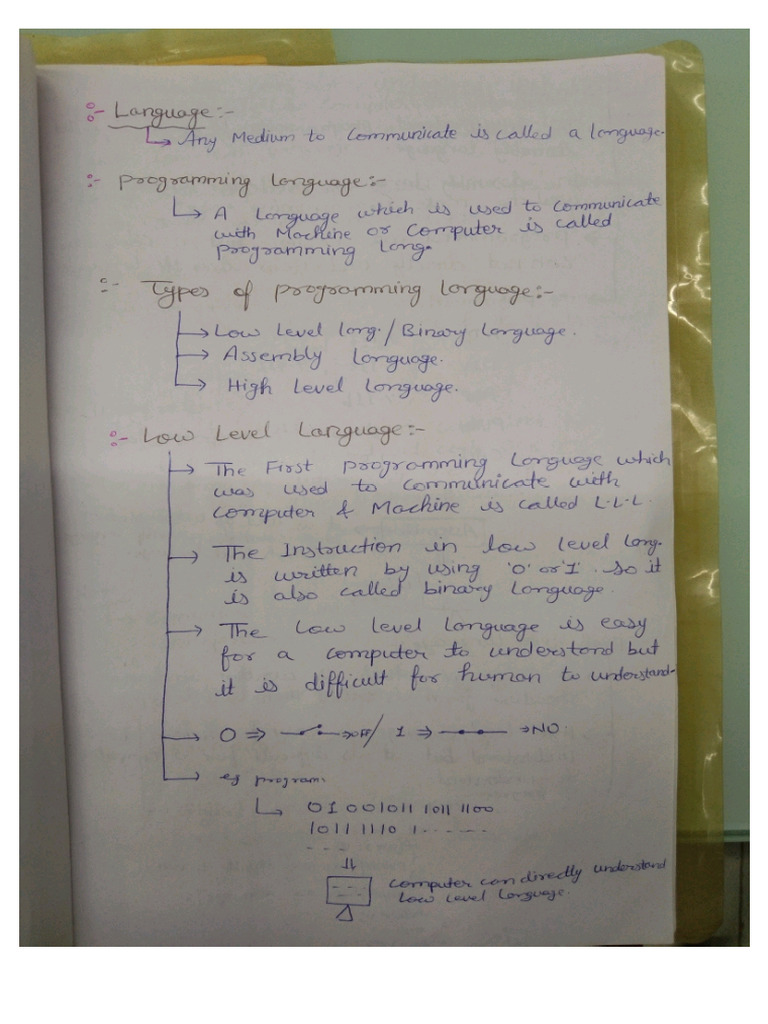 :- Language:-
Any Medium to communicate is called a language.
:- programming language:-
A language which is used to communicate
with Machine or Computer is called
programming lang.
:- Types of programming language:-
Low level lang. / Binary language.
Assembly language.
High level language.
:- Low Level Language:-
The First programming language which
was used to communicate with
computer & Machine is called L.L.L.
The Instruction in low level lang.
is written by using '0' or '1'. so it
is also called binary language.
The low level language is easy
for a computer to understand but
it is difficult for human to understand-
0 ⇒ ⇒ OFF / 1 ⇒ ⇒ NO.
eg program:
01001011 1011 1100
1011 1110 1------
---
computer can directly understand
low level language.